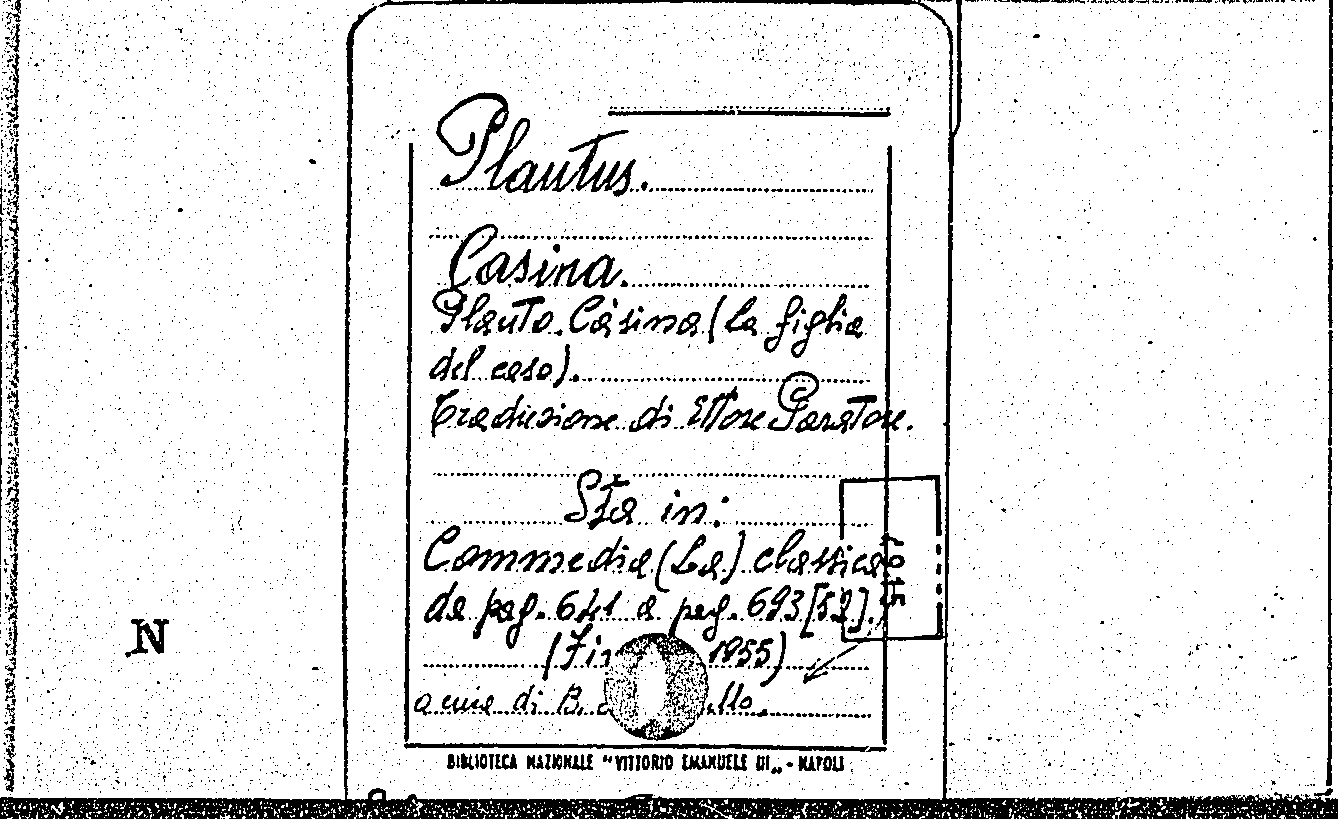 Plautus.
Casina.
Plauto. Càsina (La figlia
del caso).
Traduzione di Ettore Paratore.
Sta in:
Commedia (La) classica
da pag. 641 a pag. 693 [52].
1955)
a cura di B.
1015
N
BIBLIOTECA NAZIONALE "VITTORIO EMANUELE III„ - NAPOLI